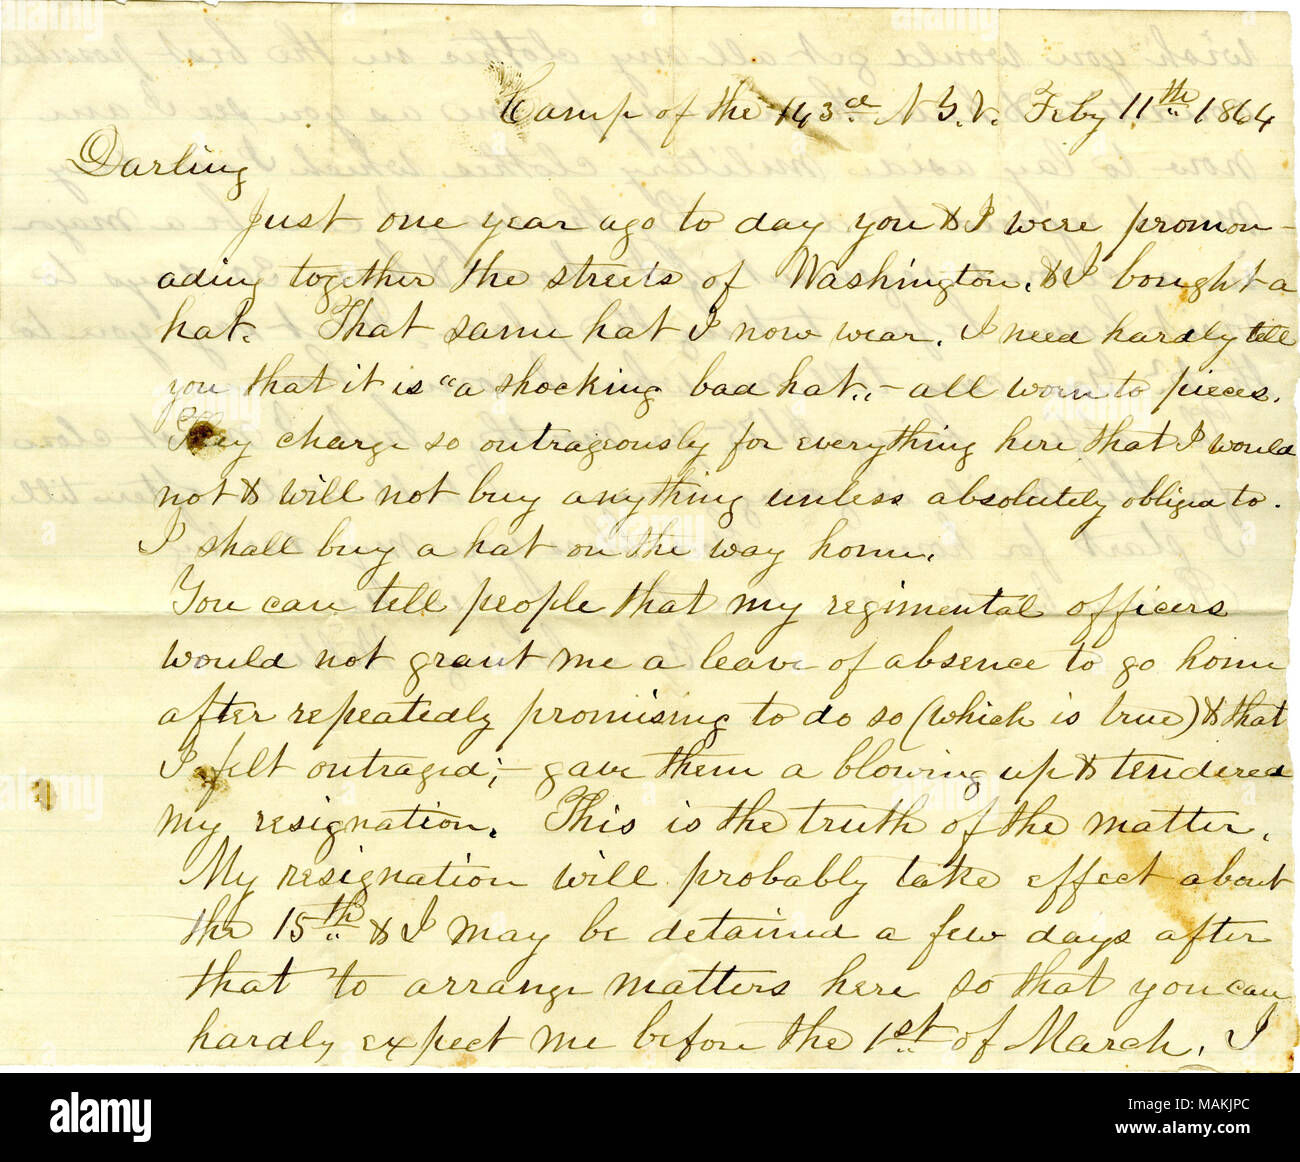 Camp of the 143d N.Y.V. Feby 11th 1864
Darling
Just one year ago to day you & I were promon-
ading together the streets of Washington, & I bought a
hat. That same hat I now wear. I need hardly tell
you that it is "a shocking bad hat", - all worn to pieces.
They charge so outrageously for everything here that I would
not & will not buy anything unless absolutely obliged to.
I shall buy a hat on the way home.
You can tell people that my regimental officers
would not grant me a leave of absence to go home
after repeatedly promising to do so (which is true) & that
I felt outraged; - gave them a blowing up & tendered
my resignation. This is the truth of the matter.
My resignation will probably take effect about
the 15th & I may be detained a few days after
that to arrange matters here so that you can
hardly expect me before the 1st of March. I
alamy
Image ID: MAKJPC
www.alamy.com